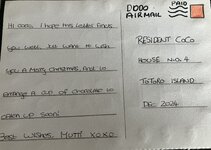 Hi Coco, I hope this letter finds
you well. Just want to wish
you a Merry Christmas, and to
arrange a cup of Character to
catch up soon!
Best Wishes, Mutti xoxo
DODO
AIRMAIL
PAID
RESIDENT COCO
HOUSE No. 4
TOTORO ISLAND
DEC 2024